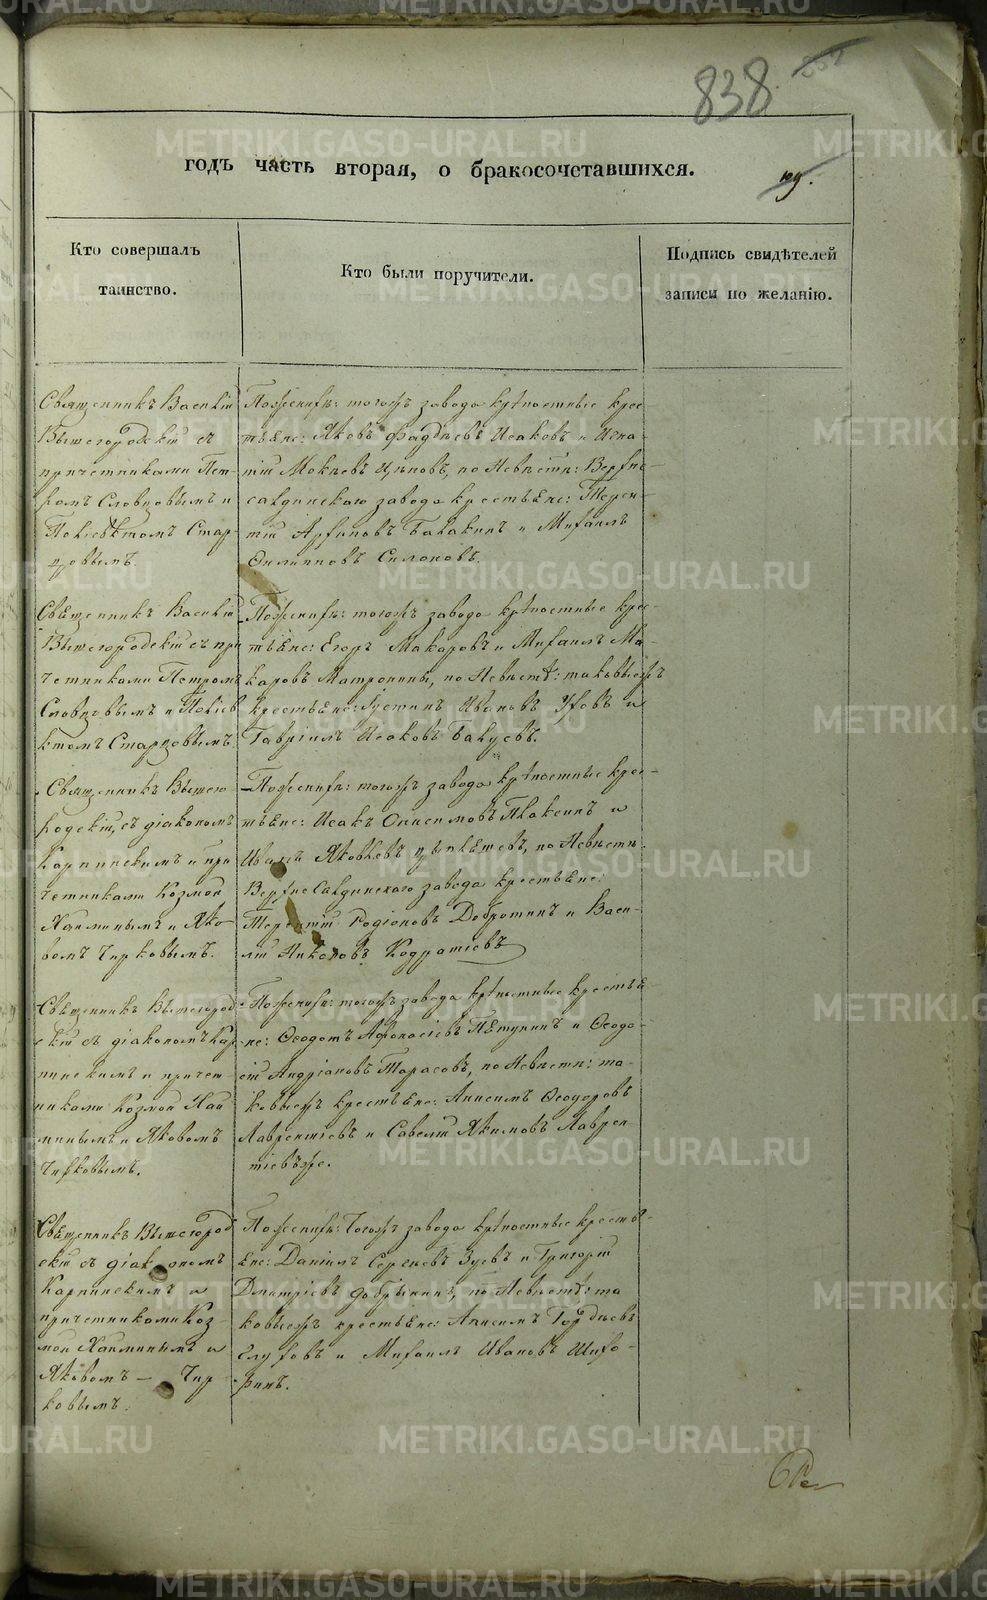 838
годъ часть вторая, о бракосочетавшихся.
Кто совершалъ
таинство.
Кто были поручители.
Подпись свидѣтелей
записи по желанію.
Священникъ Василій
Вышегородскій съ
причетниками Пет-
ромъ Словцовымъ и
Поліевктомъ Стар-
цовымъ.
По женихѣ: тогожъ завода крѣпостные крес-
тьяне: Яковъ Фадѣевъ Исаковъ и Игна-
тій Мокѣевъ по невѣстѣ: Верхне-
салдинскаго завода крестьяне: Терен-
тій Балакинъ и Михаилъ
Филипповъ
Священникъ Василій
Вышегородскій съ при
четниками Петромъ
Словцовымъ и Поліев
ктомъ Старцовымъ.
По женихѣ: тогожъ завода крѣпостные крес-
тьяне: Егоръ Макаровъ и Михаилъ Ма-
каровъ Матронины, по невѣстѣ: таковыежъ
крестьяне: Іустинъ Ивановъ и
Гавріилъ Исаковъ
Священникъ Вышего
родскій, съ діакономъ
Карпинскимъ и при
четниками Козмой
и Яко
вомъ Чирковымъ.
По женихѣ: тогожъ завода крѣпостные крес-
тьяне: Исакъ Онисимовъ и
Иванъ Яковлевъ по невѣстѣ:
Верхнесалдинскаго завода крестьяне:
Терентій Родіоновъ Добротинъ и Васи-
лій Кодратіевъ
Священникъ Вышегород
скій съ діакономъ Кар
пинскимъ и причет
никами Козмой
и Яковомъ
Чирковымъ.
По женихѣ: тогожъ завода крѣпостные крестья
не: Ѳеодотъ Афонасіевъ Пѣтунинъ и Ѳеодо-
сій Андріановъ Тарасовъ, по невѣстѣ: та-
ковыежъ крестьяне: Анисимъ Ѳеодоровъ
Лаврентіевъ и Савелій Якимовъ Лаврен
тіевъже.
Священникъ Вышегород
скій съ діакономъ
Карпинскимъ и
причетниками Коз-
мой и
Яковомъ — Чир
ковымъ.
По женихѣ: тогожъ завода крѣпостные кресть-
яне: Даніилъ Сергѣевъ Зуевъ и Григорій
Дмитріевъ Добрынинъ, по невѣстѣ: та
ковыежъ крестьяне: Анисимъ Гордѣевъ
и Михаилъ Ивановъ
METRIKI.GASO-URAL.RU